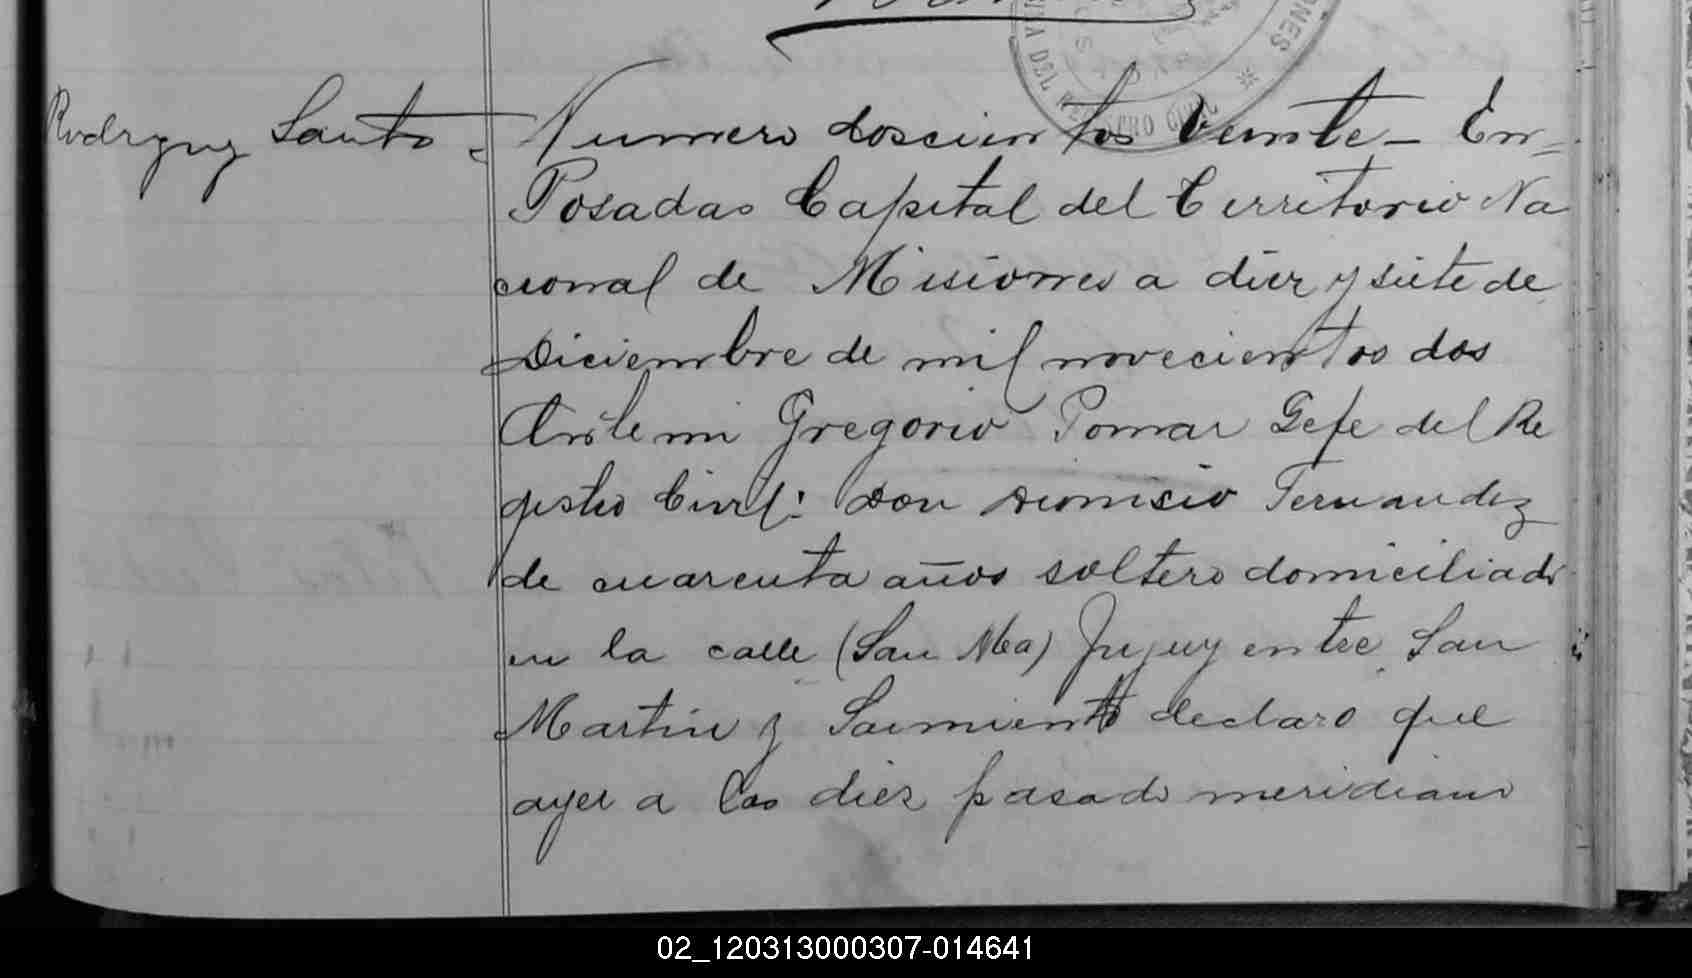 Rodriguez Santo =
Numero doscientos veinte - En=
Posadas Capital del Territorio Na
cional de Misiones a diez y siete de
Diciembre de mil novecientos dos
Ante mi Gregorio Pomar Gefe del Re
gistro Civil: Don Dionisio Fernandez
de cuarenta años soltero domiciliado
en la calle (San Ma) Jujuy entre San
Martin y Sarmiento declaro que
ayer a las diez pasado meridiano
02_120313000307-014641